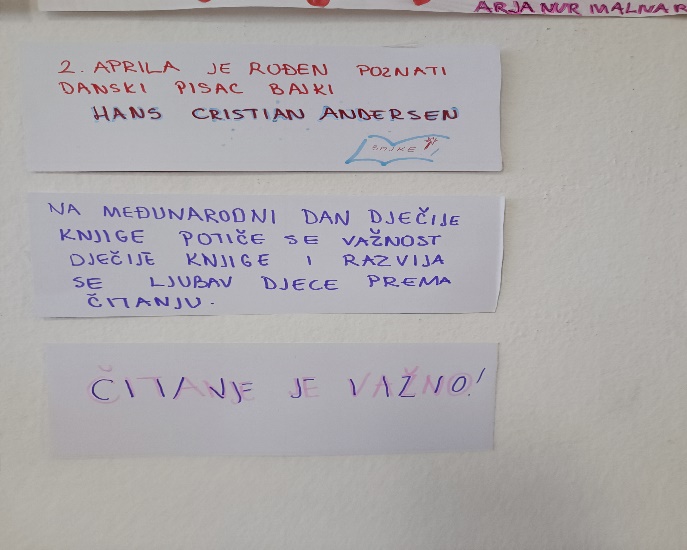 ARJA NUR MALNAR
2. APRILA JE ROĐEN POZNATI
DANSKI PISAC BAJKI
HANS CRISTIAN ANDERSEN
BAJKE
NA MEĐUNARODNI DAN DJEČIJE
KNJIGE POTIČE SE VAŽNOST
DJEČIJE KNJIGE I RAZVIJA
SE LJUBAV DJECE PREMA
ČITANJU.
ČITANJE JE VAŽNO!